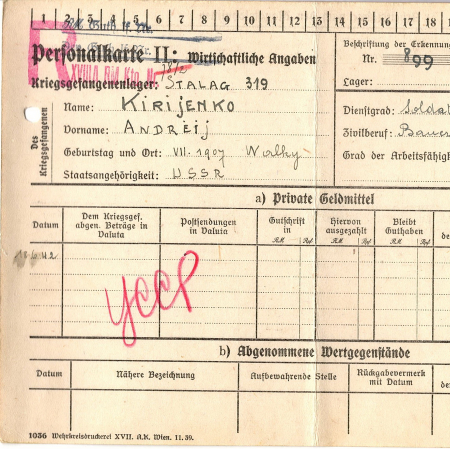 1 2 3 4 5 6 7 8 9 10 11 12 13 14 15 16 17 18
Personalkarte II: Wirtschaftliche Angaben
Beschriftung der Erkennun
Nr. 899
Kriegsgefangenenlager: STALAG 319
Lager:
Des Kriegsgefangenen
Name: KIRIJENKO
Dienstgrad: Soldat
Vorname: ANDREIJ
Zivilberuf: Bauer
Geburtstag und Ort: VII. 1907 Walky
Grad der Arbeitsfähig
Staatsangehörigkeit: USSR
a) Private Geldmittel
Datum
Dem Kriegsgef. abgen. Beträge in Valuta
Postsendungen in Valuta
Gutschrift in
RM Rpf
Hiervon ausgezahlt
RM Rpf
Bleibt Guthaben
RM Rpf
de
6.42
УССР
b) Abgenommene Wertgegenstände
Datum
Nähere Bezeichnung
Aufbewahrende Stelle
Rückgabevermerk mit Datum
de
1036 Wehrkreisdruckerei XVII. A.K. Wien. 11.39.